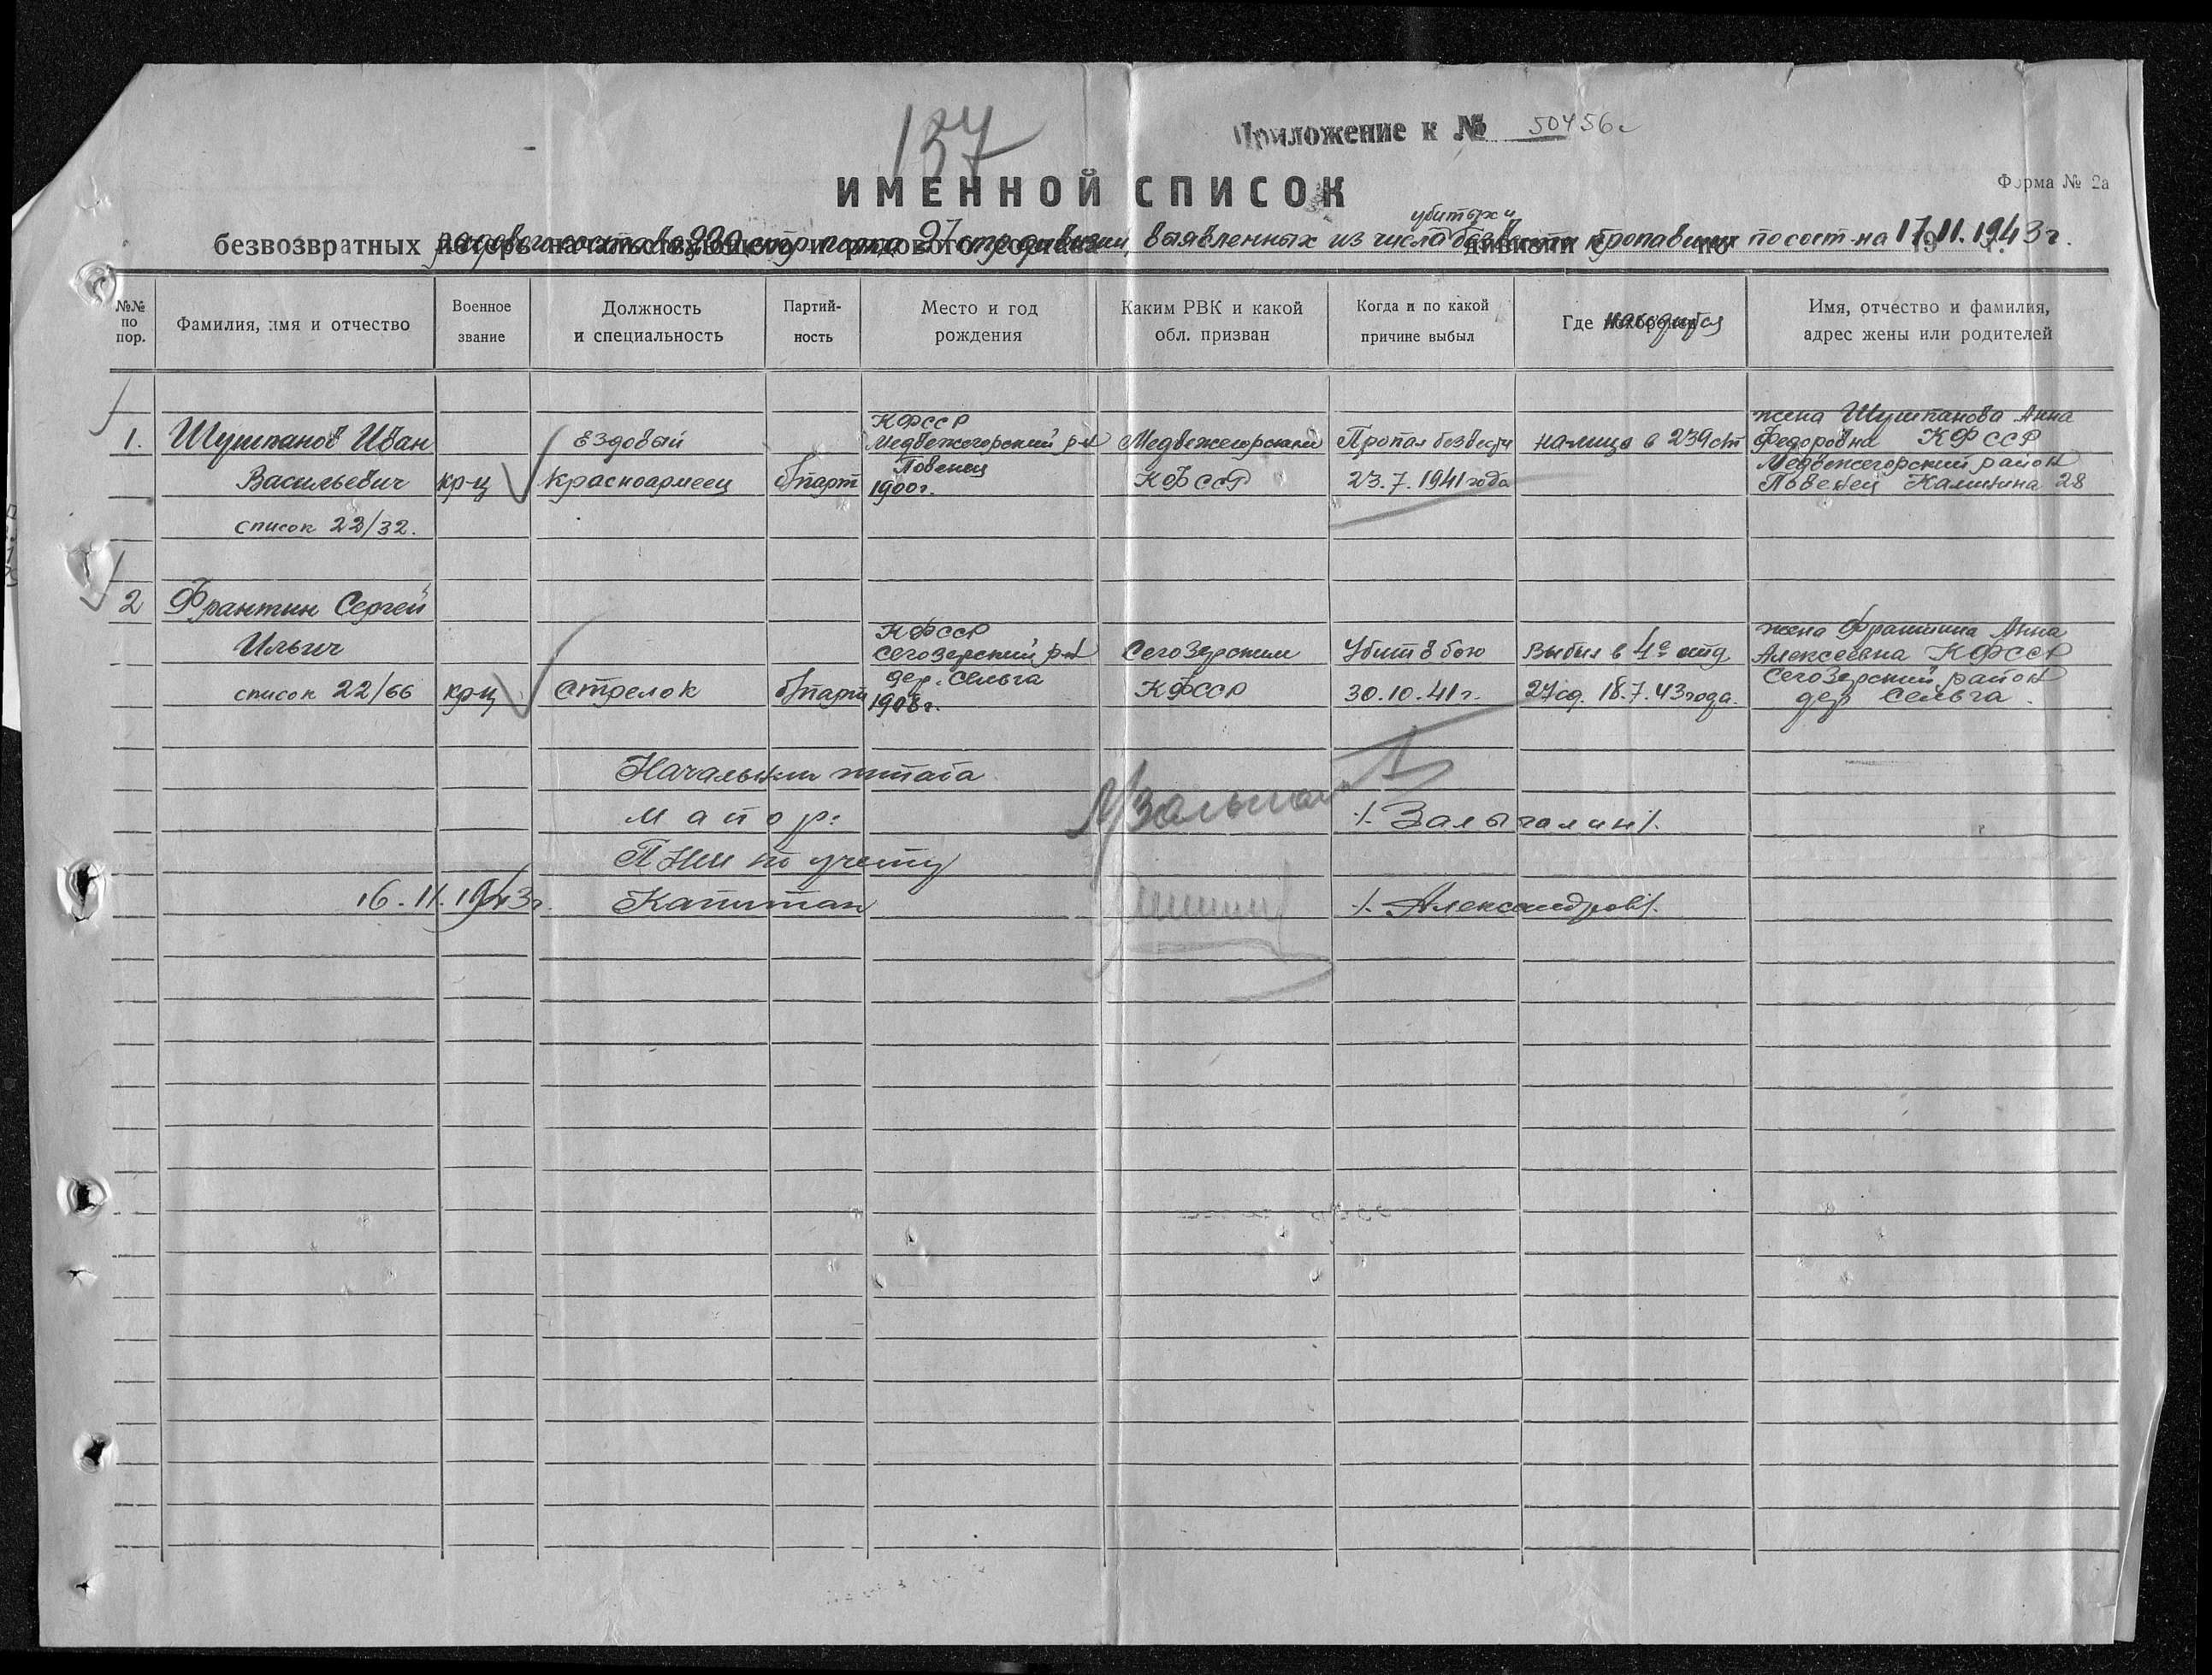 137
Приложение к № 50456с
ИМЕННОЙ СПИСОК
Форма № 2а
убитых и
безвозвратных потерь начальствующего и рядового состава дивизии с по 19 г.
рядового состава 239 стр. полка 27 стр. дивизии, выявленных из числа без вести пропавших по сост. на 17.11.1943 г.
№№ по пор.
Фамилия, имя и отчество
Военное звание
Должность и специальность
Партий-ность
Место и год рождения
Каким РВК и какой обл. призван
Когда и по какой причине выбыл
Где находится
Имя, отчество и фамилия, адрес жены или родителей
1. Шушпанов Иван
Васильевич
список 22/32.
кр-ц
Ездовый
Красноармеец
б/парт
КФССР
Медвежегорский р-н
Повенец
1900г.
Медвежегорским
КФССР
Пропал без вести
23.7.1941 года
налицо в 239 сп
жена Шушпанова Анна
Федоровна КФССР
Медвежегорский район
Повенец Калинина 28
2 Франтин Сергей
Ильич
список 22/66
кр-ц
Стрелок
б/парт
КФССР
Сегозерский р-н
дер. Сельга
1908г.
Сегозерским
КФССР
Убит в бою
30.10.41г.
Выбыл в 4е отд.
27 сд. 18.7.43 года.
жена Франтина Анна
Алексеевна КФССР
Сегозерский район
дер Сельга.
Начальник штаба
Майор:
ПНШ по учету
16.11.1943г. Капитан /. Александров/.